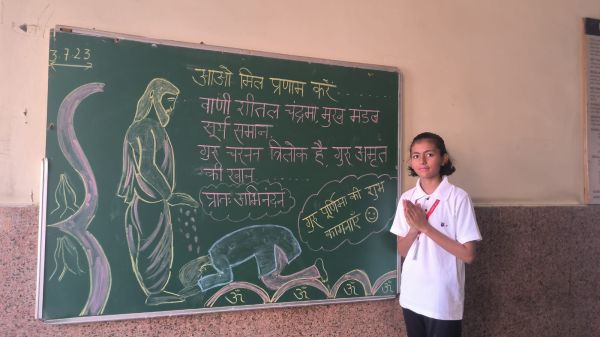 3.7.23
आओ मिल प्रणाम करें
वाणी शीतल चंद्रमा, मुख मंडल
सूर्य समान
गुरु चरनन त्रिलोक है, गुरु अमृत
की खान
प्रातः अभिनंदन
गुरु पूर्णिमा की शुभ
कामनाएँ
ॐ ॐ ॐ ॐ